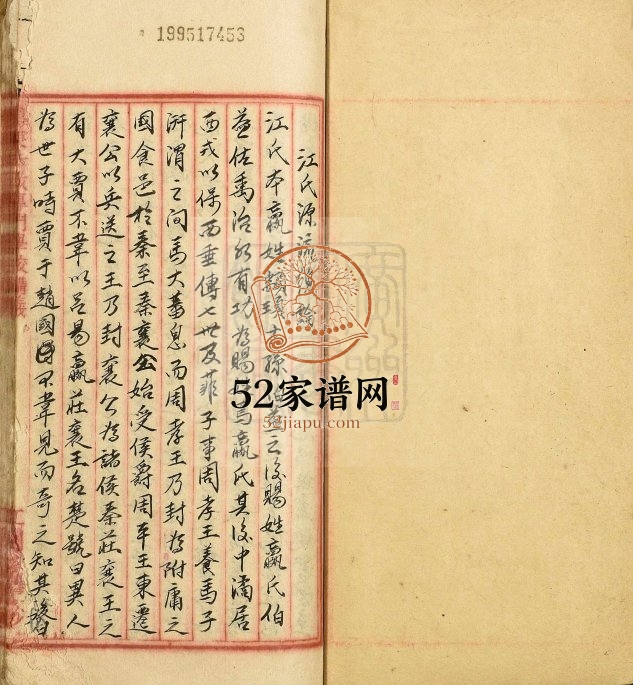 199517453
江氏源流
江氏本嬴姓顓頊之後賜姓嬴氏伯
益佐禹治水有功為賜馬嬴氏其後中潏居
西戎以保西垂傳七世及菲子事周孝王養馬子
汧渭之间馬大蕃息而周孝王乃封為附庸之
國食邑於秦至秦襄公始受侯爵周平王東遷
襄公以兵送之王乃封襄公為諸侯秦莊襄王之
有大賈不韋以呂易嬴莊襄王名楚號曰異人
為世子時賈于趙國不韋見而奇之知其
52家谱网
52jiapu.com